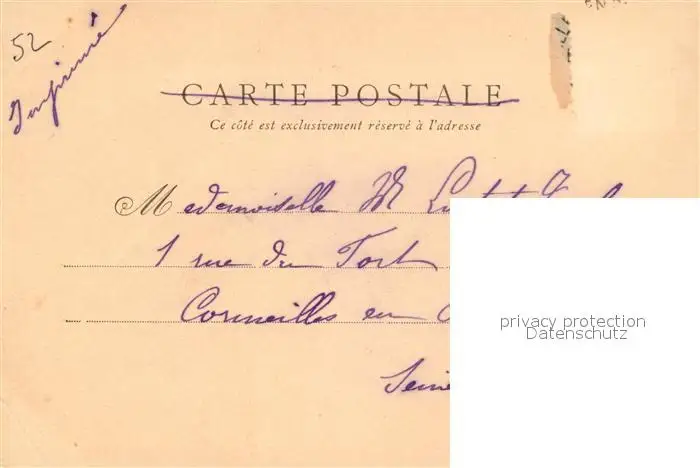 52
Imprimé
CARTE POSTALE
Ce côté est exclusivement réservé à l'adresse
Mademoiselle M
1 rue du Fort
Cormeilles en
Seine
privacy protection
Datenschutz